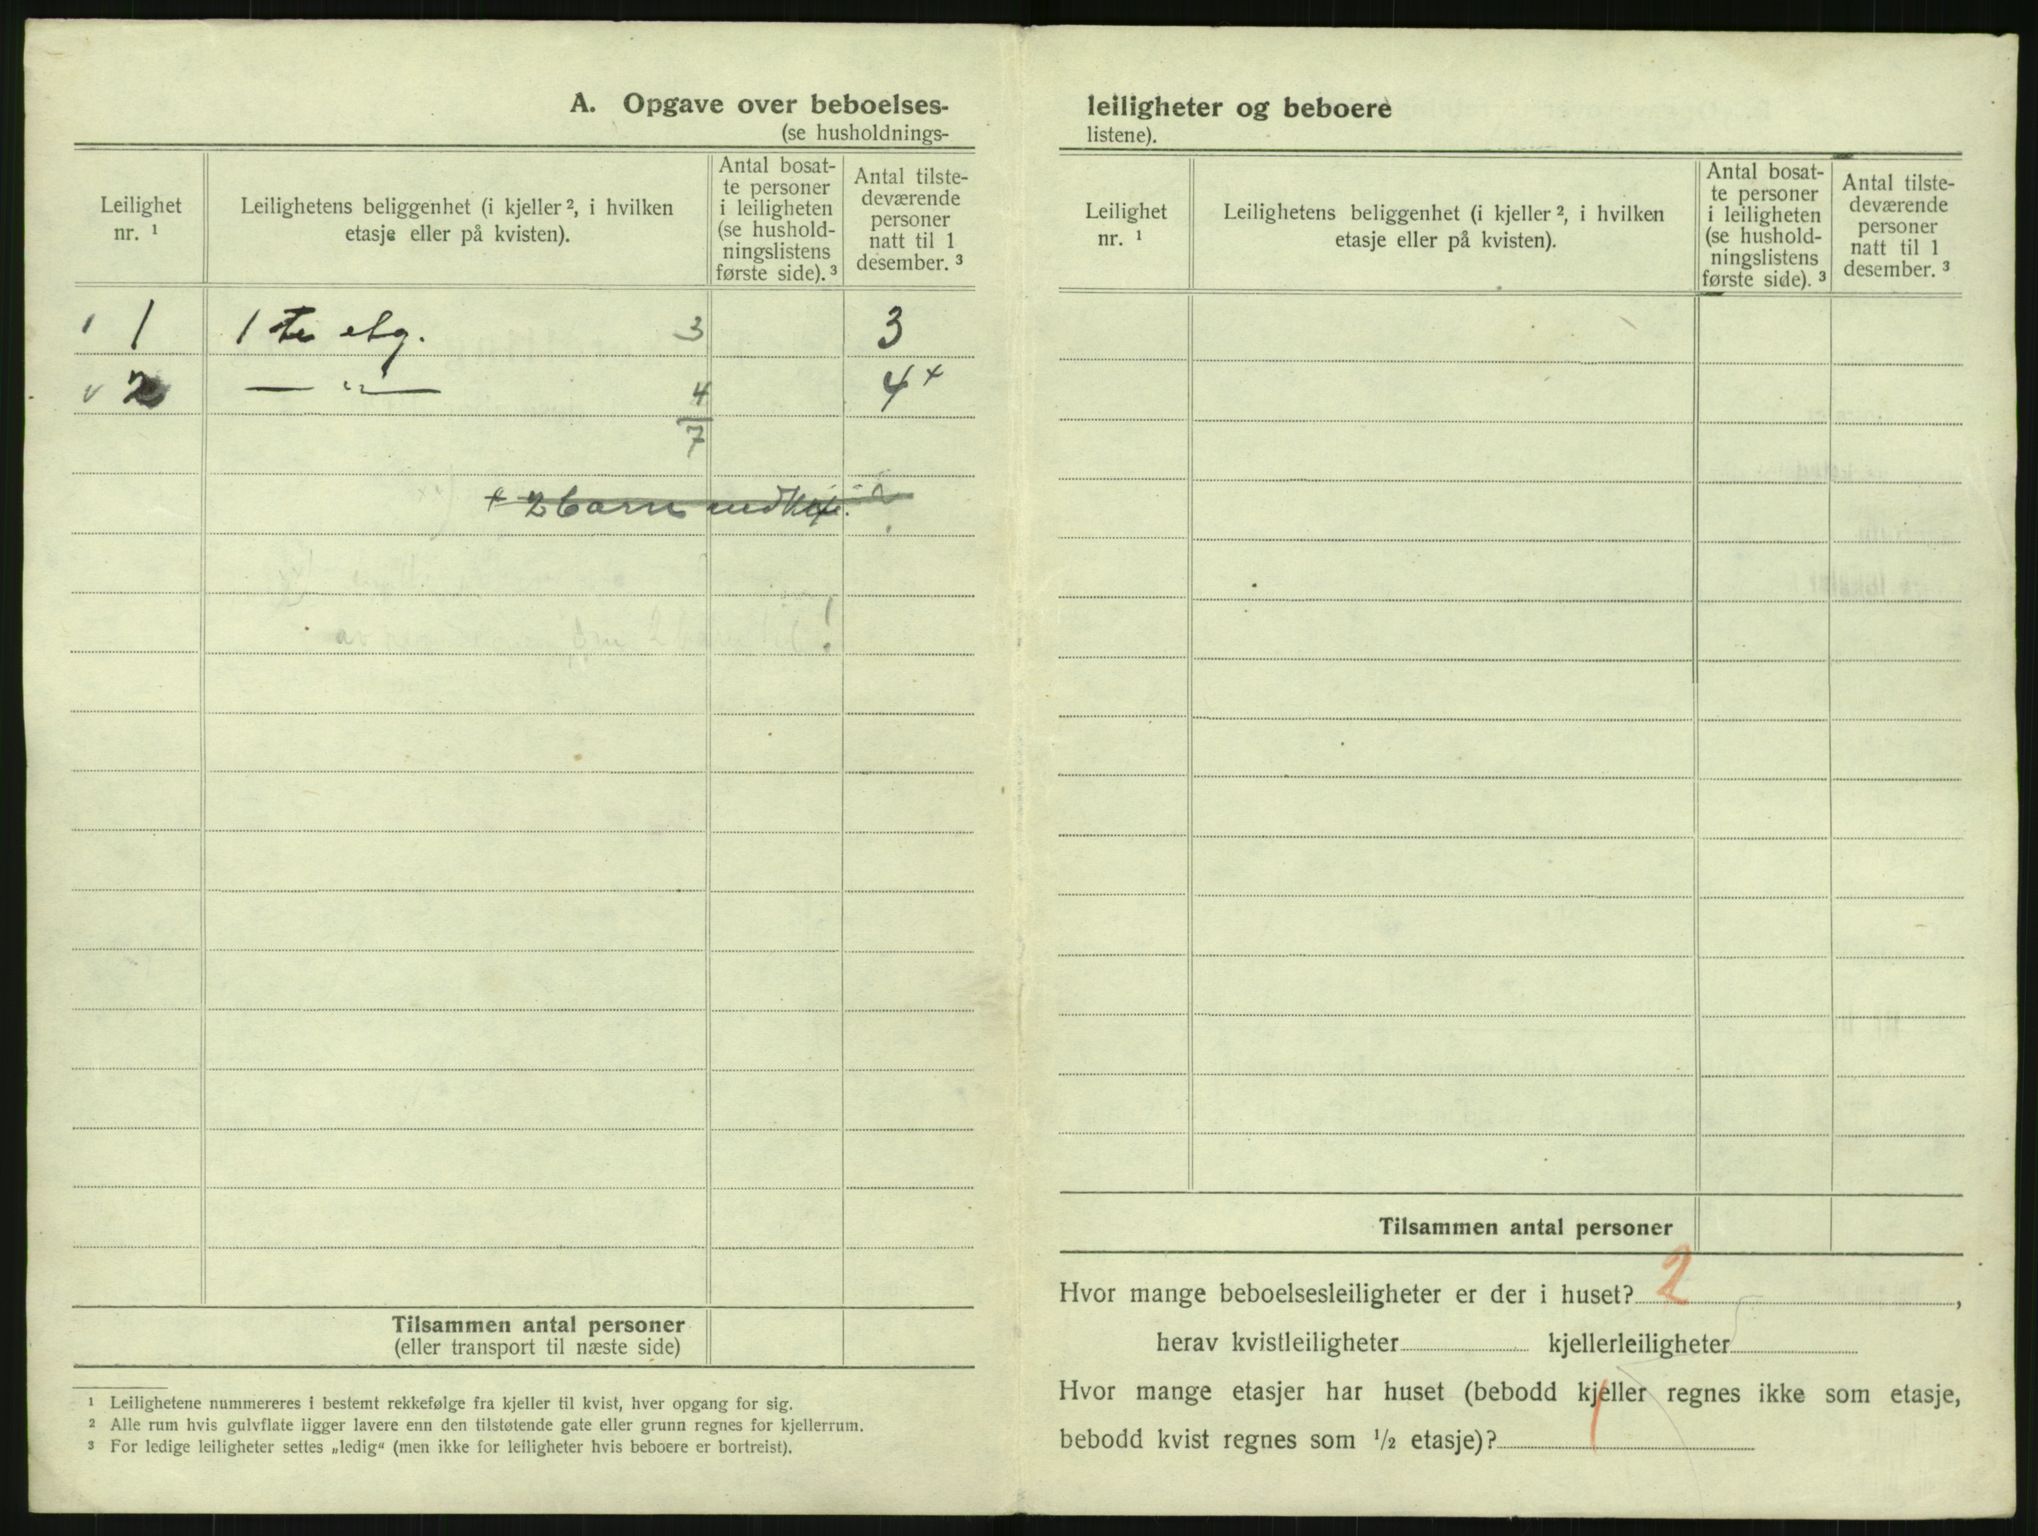 A. Opgave over beboelses-
(se husholdnings-
Leilighet
nr. ¹
Leilighetens beliggenhet (i kjeller ², i hvilken
etasje eller på kvisten).
Antal bosat-
te personer
i leiligheten
(se hushold-
ningslistens
første side). ³
Antal tilste-
deværende
personer
natt til 1
desember. ³
1 1 1 ste etg. 3 3
v 2 — " — 4 4 +
7
+ 2 barn
2 barn
Tilsammen antal personer
(eller transport til næste side)
¹ Leilighetene nummereres i bestemt rekkefølge fra kjeller til kvist, hver opgang for sig.
² Alle rum hvis gulvflate ligger lavere enn den tilstøtende gate eller grunn regnes for kjellerrum.
³ For ledige leiligheter settes „ledig“ (men ikke for leiligheter hvis beboere er bortreist).
leiligheter og beboere
listene).
Leilighet
nr. ¹
Leilighetens beliggenhet (i kjeller ², i hvilken
etasje eller på kvisten).
Antal bosat-
te personer
i leiligheten
(se hushold-
ningslistens
første side). ³
Antal tilste-
deværende
personer
natt til 1
desember. ³
Tilsammen antal personer
Hvor mange beboelsesleiligheter er der i huset? 2 ,
herav kvistleiligheter kjellerleiligheter
Hvor mange etasjer har huset (bebodd kjeller regnes ikke som etasje,
bebodd kvist regnes som ½ etasje)? 1